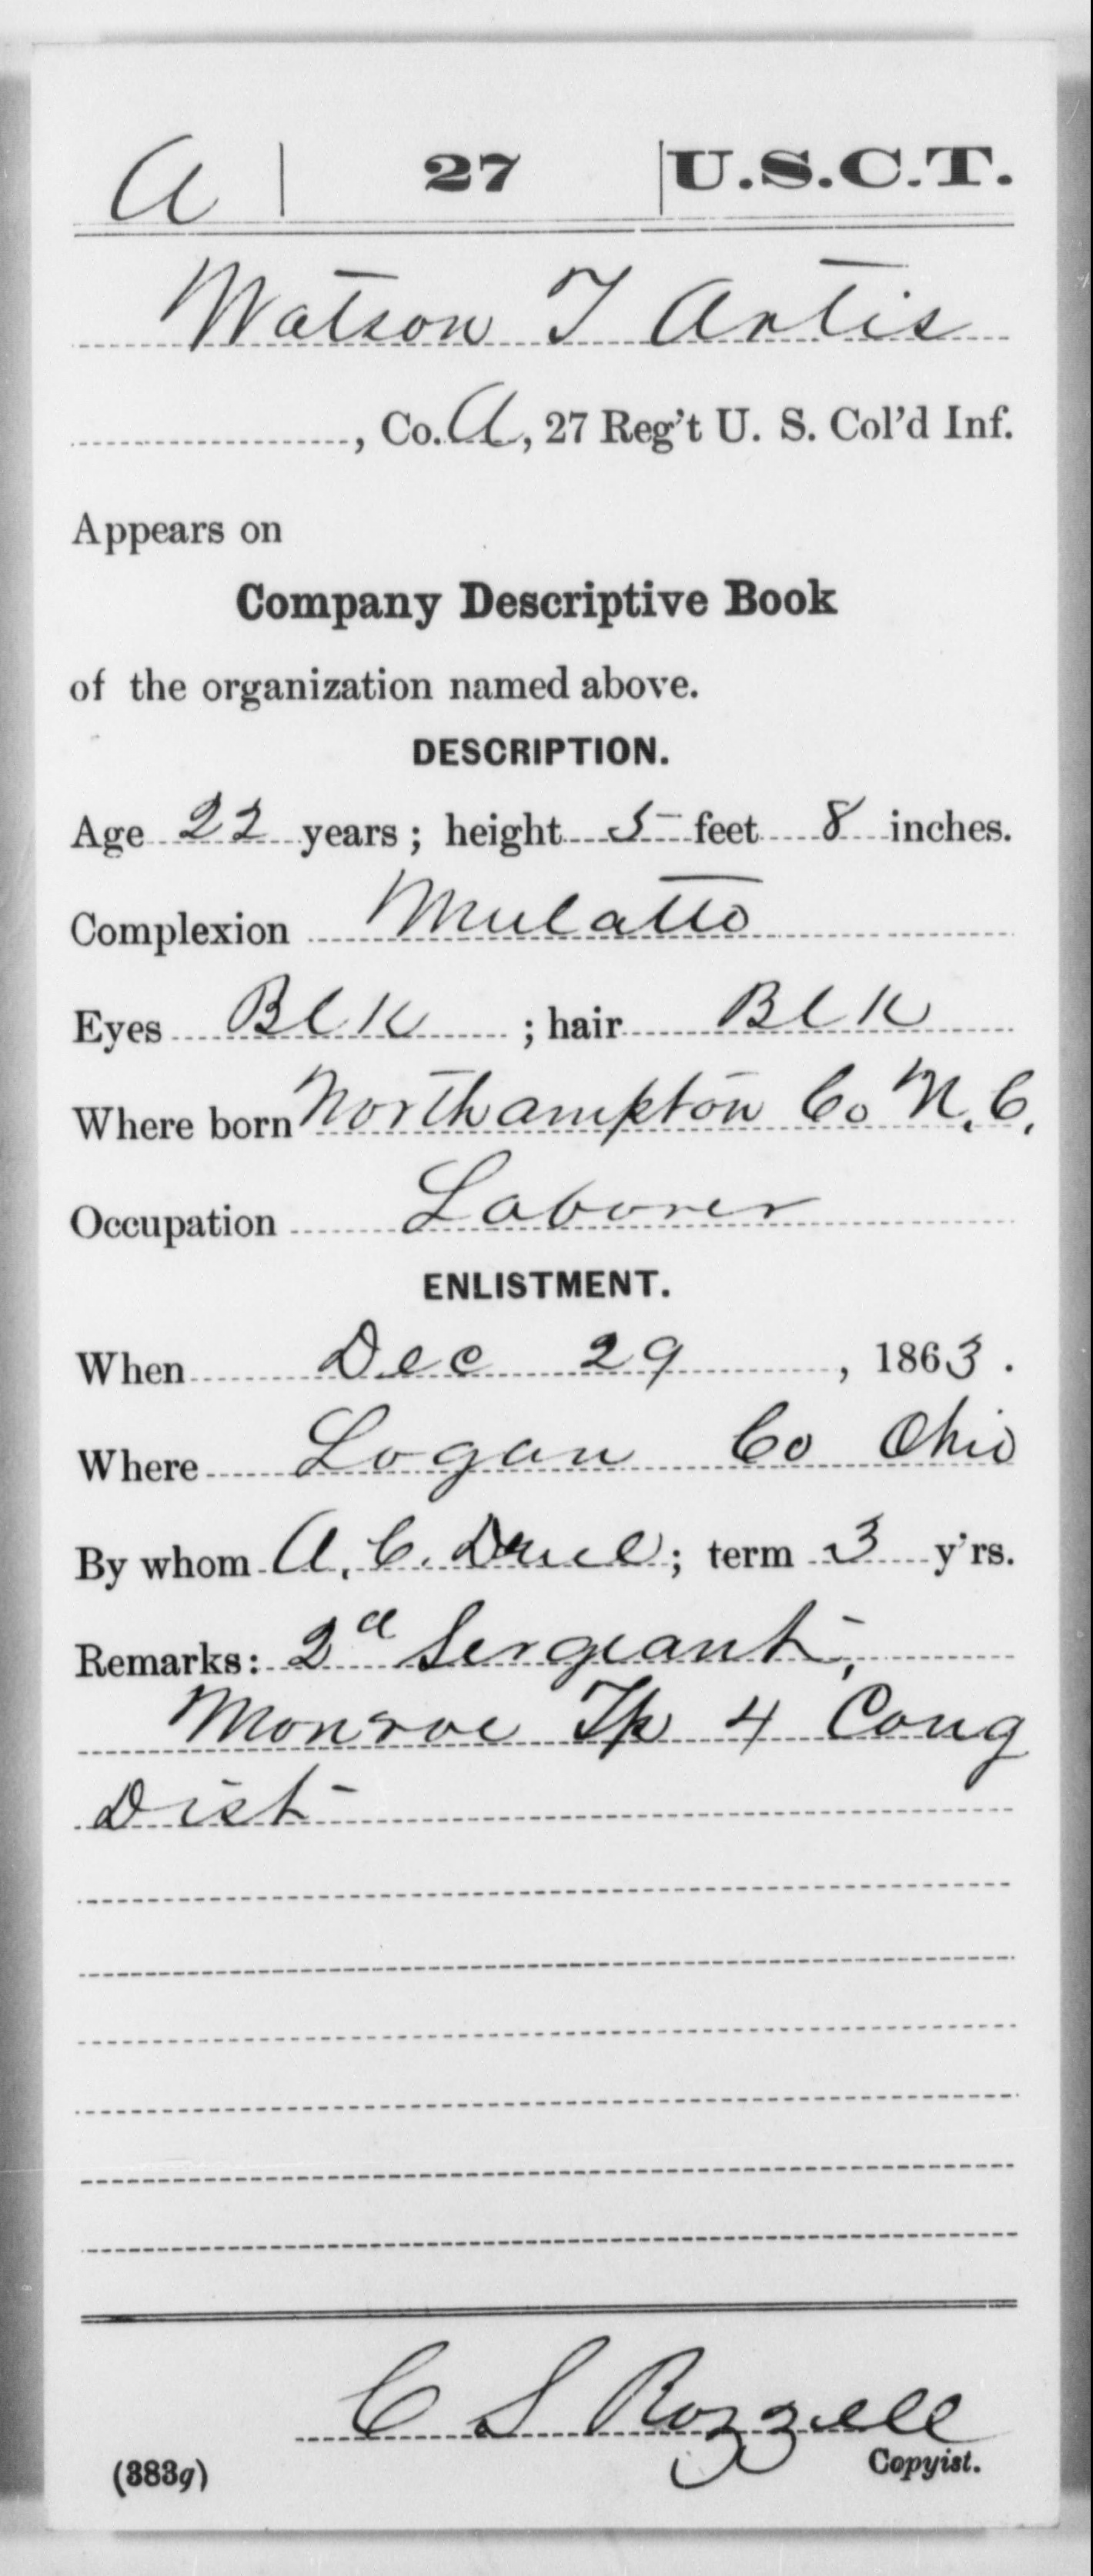 A 27 U.S.C.T.
Watson T Artis
, Co. A, 27 Reg't U. S. Col'd Inf.
Appears on
Company Descriptive Book
of the organization named above.
DESCRIPTION.
Age 22 years; height 5 feet 8 inches.
Complexion Mulatto
Eyes Blk ; hair Blk
Where born Northampton Co N.C.
Occupation Laborer
ENLISTMENT.
When Dec 29, 1863.
Where Logan Co Ohio
By whom A. C. ; term 3 y'rs.
Remarks: 2d Sergeant,
Monroe Tp 4 Cong
Dist
C S Rozzell
(383g) Copyist.